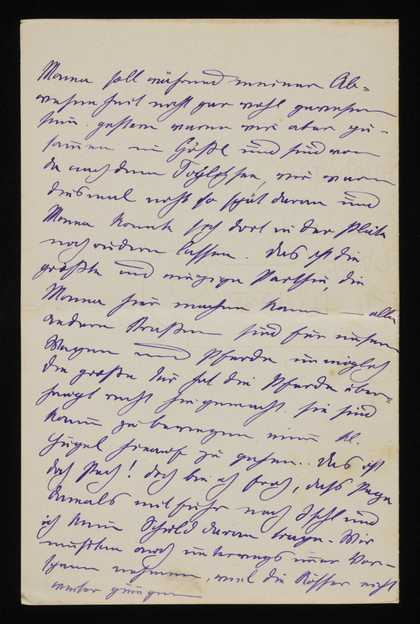 Mama soll während meiner Ab-
wesenheit nicht gar wohl gewesen
sein. gestern waren wir aber zu-
sammen in Gößl und sind von
da nach dem Töplitzsee, wir waren
diesmal nicht so spät daran und
Mama konnte sich dort in der Plätte
noch rudern lassen. Das ist die
größte und einzige Parthie, die
Mama hier machen kann — alle
andern Straßen sind für unsern
Wagen und Pferde unmöglich
die große Tour hat die Pferde über-
haupt recht hergemacht. sie sind
kaum zu bewegen einen kl.
Hügel hinauf zu gehen. Das ist
doch Pech! doch bin ich froh, dass Papa
damals mit fuhr nach Ischl und
ich keine Schuld daran trage. Wir
mußten auch unterwegs immer Vor-
spann nehmen, weil die Rösser nicht
weiter gingen